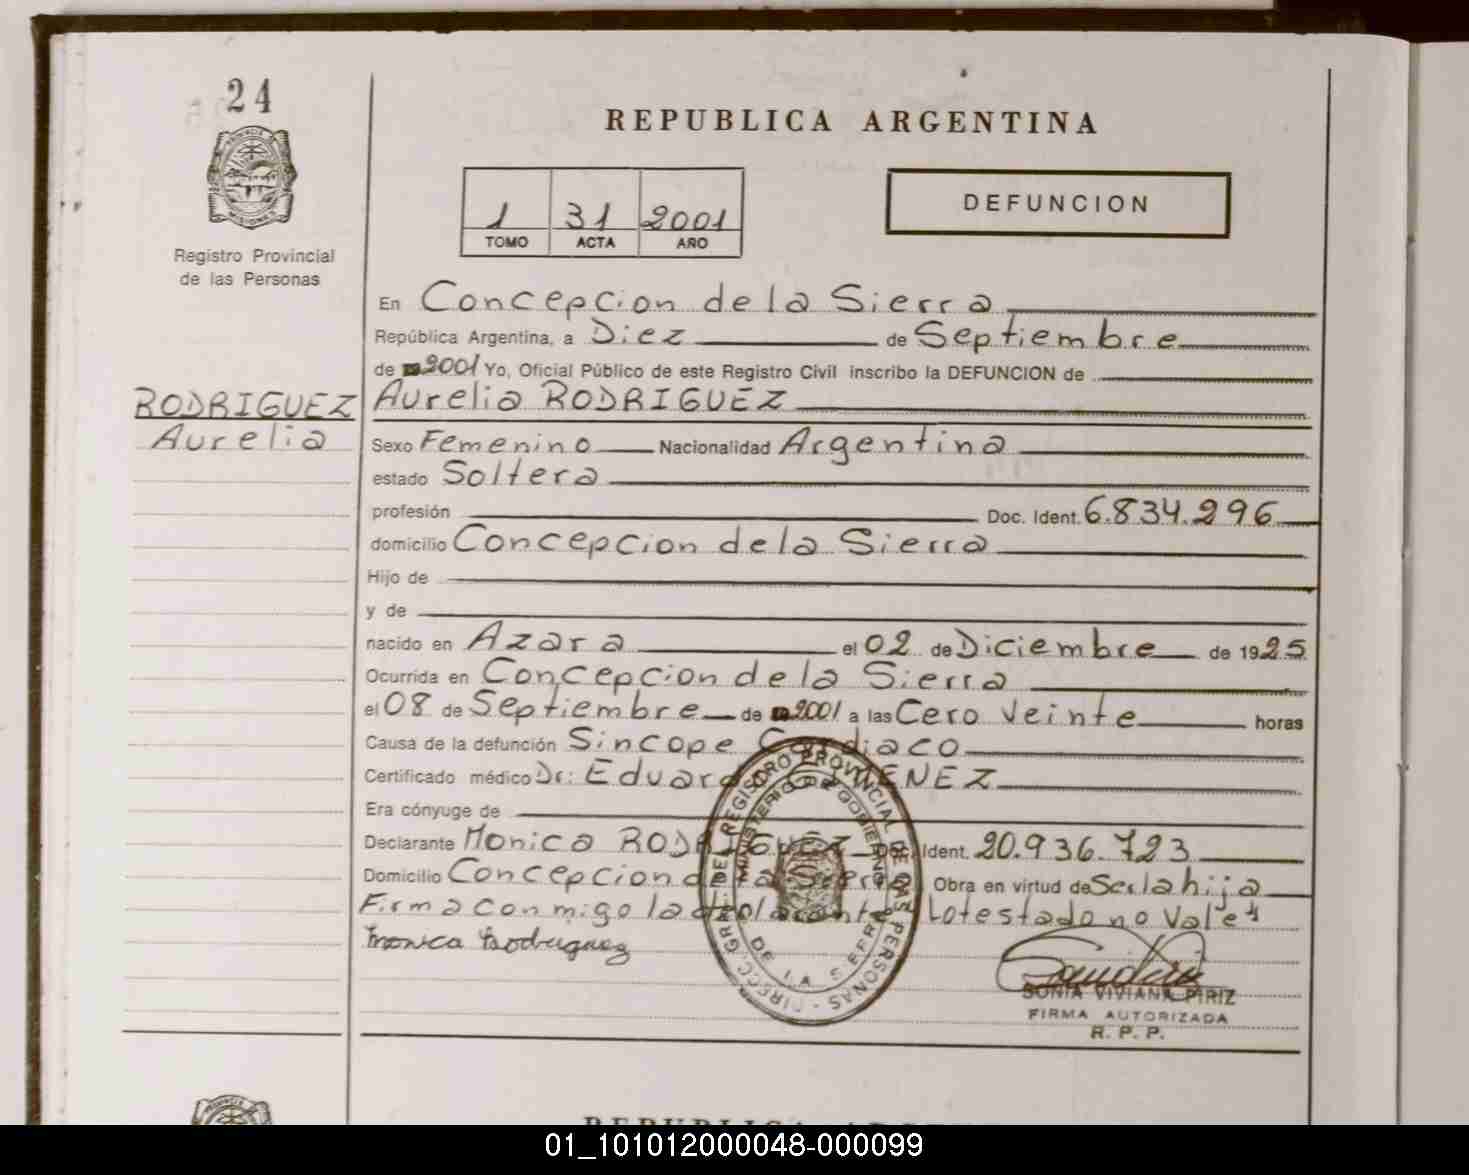 24
REPUBLICA ARGENTINA
DEFUNCION
1 31 2001
TOMO ACTA AÑO
Registro Provincial
de las Personas
En Concepcion de la Sierra
República Argentina, a Diez de Septiembre
de 2001 Yo, Oficial Público de este Registro Civil inscribo la DEFUNCION de
RODRIGUEZ
Aurelia
Aurelia RODRIGUEZ
Sexo Femenino Nacionalidad Argentina
estado Soltera
profesión Doc. Ident. 6.834.296
domicilio Concepcion de la Sierra
Hijo de
y de
nacido en Azara el 02 de Diciembre de 1925
Ocurrida en Concepcion de la Sierra
el 08 de Septiembre de 2001 a las Cero Veinte horas
Causa de la defunción Sincope Cardiaco
Certificado médico Dr: Eduardo
Era cónyuge de
Declarante Monica RODRIGUEZ Doc. Ident. 20.936.723
Domicilio Concepcion de la Sierra Obra en virtud de Ser la hija
Firma conmigo la declarante Lo testado no vale
Monica Rodriguez
SONIA VIVIANA PIRIZ
FIRMA AUTORIZADA
R. P. P.
DIRECC. GRAL. DEL REGISTRO PROVINCIAL DE LAS PERSONAS
MINISTERIO DE GOBIERNO
DE LA SIERRA
MISIONES
REPUBLICA
01_101012000048-000099